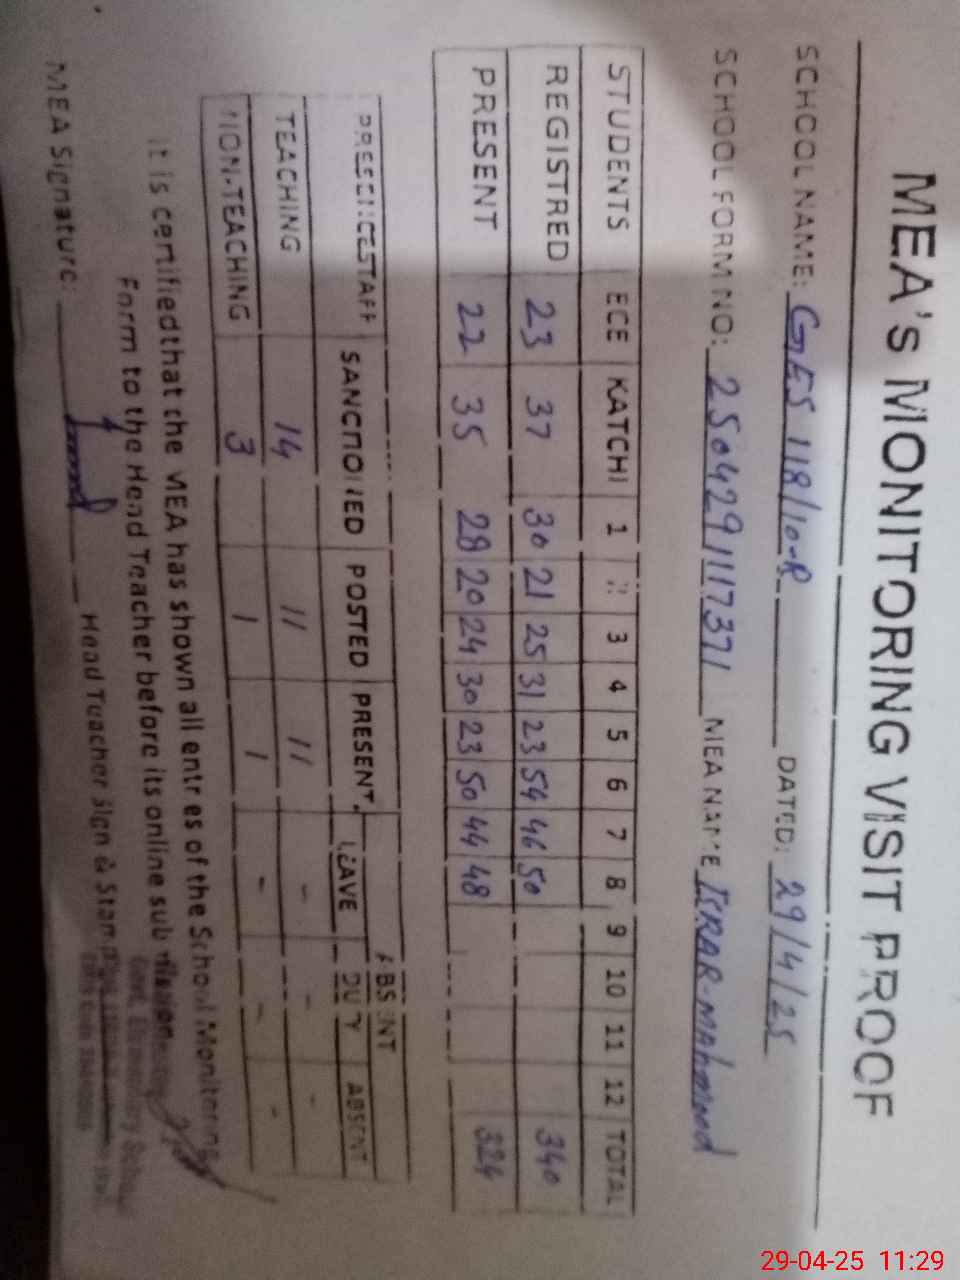 MEA'S MONITORING VISIT PROOF
SCHOOL NAME: GES 118/10-R DATED: 29/4/25
SCHOOL FORM NO: 2504291117371 MEA NAME ISRAR-MAhmood
STUDENTS ECE KATCHI 1 2 3 4 5 6 7 8 9 10 11 12 TOTAL
REGISTRED 23 37 30 21 25 31 23 54 46 50 340
PRESENT 22 35 28 20 24 30 23 50 44 48 324
ABSENT
PRESENCE STAFF SANCTIONED POSTED PRESENT LEAVE DUTY ABSENT
TEACHING 14 11 11 - - -
NON-TEACHING 3 1 1 - - -
It is certified that the MEA has shown all entries of the School Monitoring
Form to the Head Teacher before its online submission
MEA Signature: Head Teacher Sign & Stamp
29-04-25 11:29